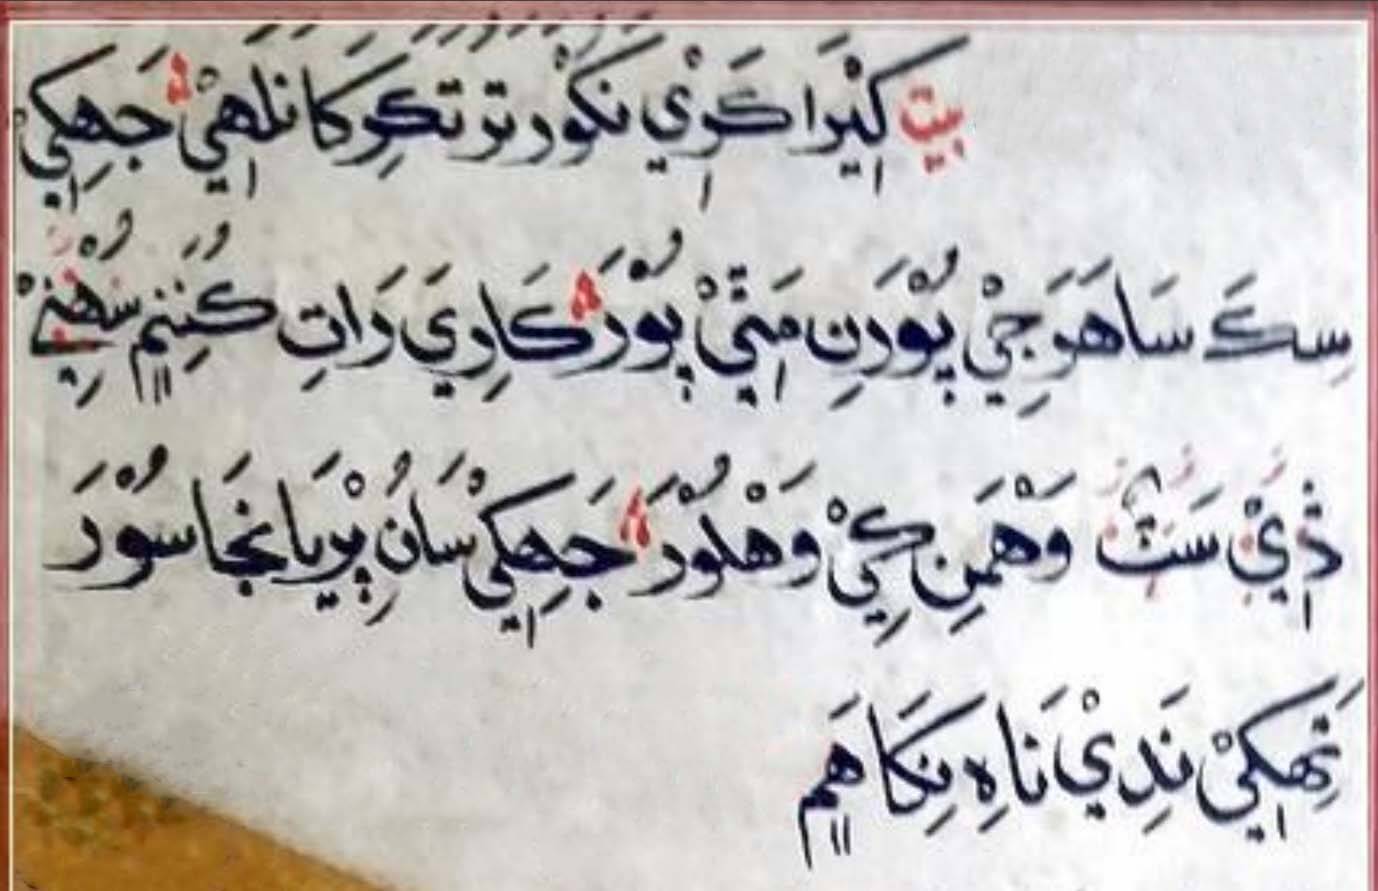 بيت كِيْرَا كَرَي نَكُوْر تر تكر كا نلهيْ جَهِكِي
سِكَ سَاهَوَجِيْ پُوْرَنِ مَٿيْ پُوْرَ كَارِيَ رَاتِ كُنَنِم سُهْنِيْ
ڏِيْ سَٽ وَهْمَنِ كِيْ وَهْلُوْرَ جَهِكِيْ سَانُ پِرْيَانجَا سُوْرَ
تِهِكِيْ نَدِيْ نَاهِ نِكَا هَم